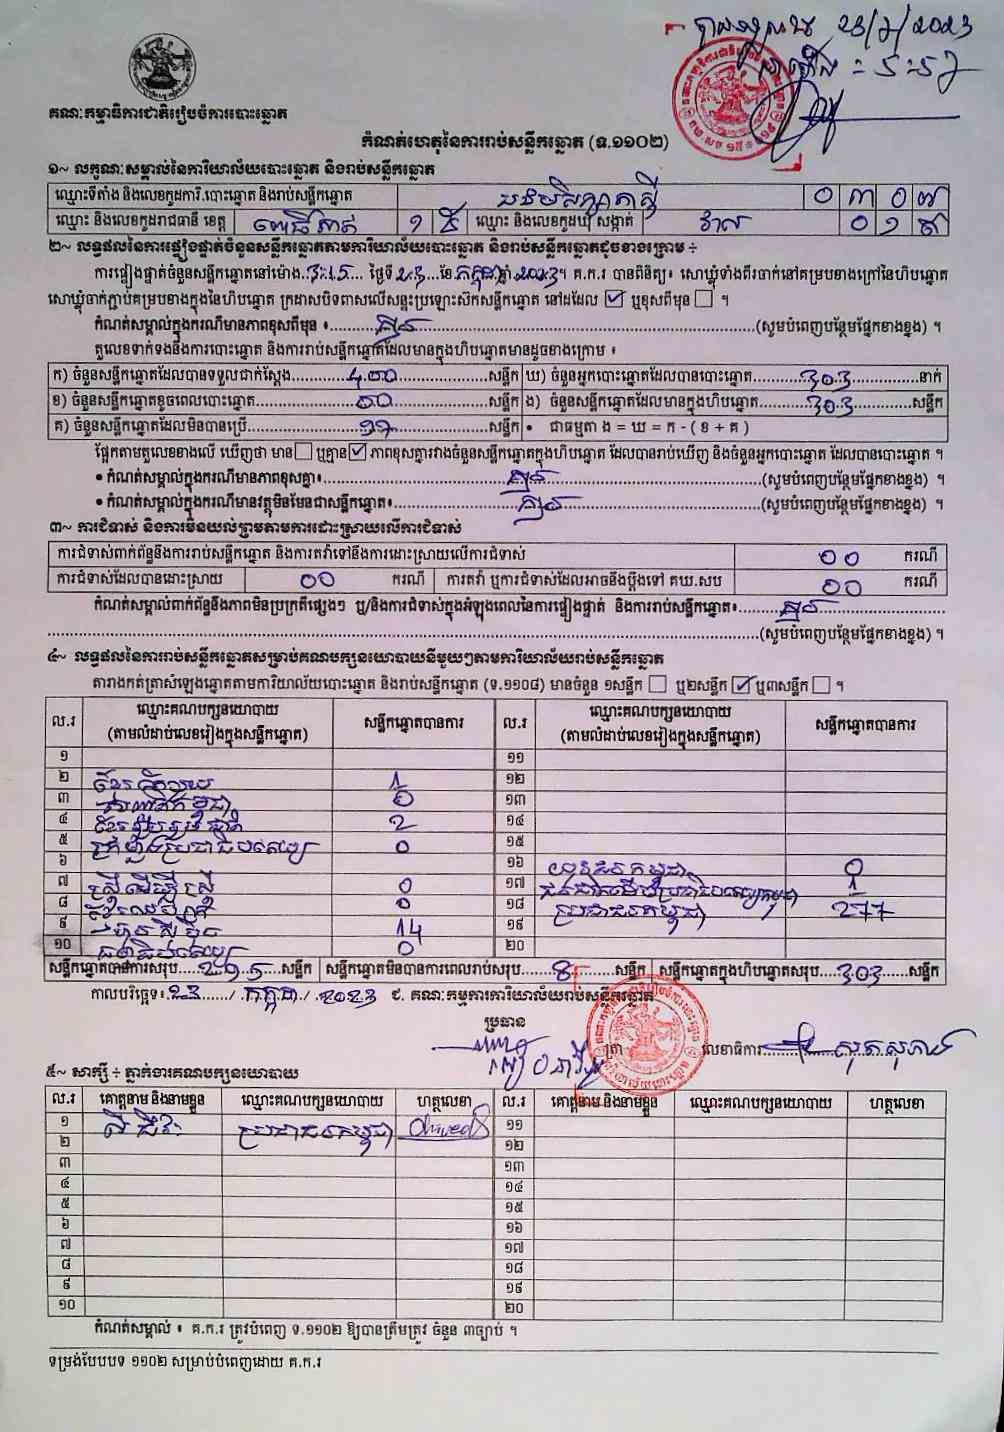 23/7/2023
គណៈកម្មាធិការជាតិរៀបចំការបោះឆ្នោត
កំណត់ហេតុនៃការរាប់សន្លឹកឆ្នោត (ទ.១១០២)
១~ លក្ខណៈសម្គាល់នៃការិយាល័យបោះឆ្នោត និងរាប់សន្លឹកឆ្នោត
ឈ្មោះទីតាំង និងលេខកូដការិ.បោះឆ្នោត និងរាប់សន្លឹកឆ្នោត ០ ៣ ០ ៧
ឈ្មោះ និងលេខកូដរាជធានី ខេត្ត ពោធិ៍សាត់ ១ ៥ ឈ្មោះ និងលេខកូដឃុំ សង្កាត់ វាល ០ ១ ៩
២~ លទ្ធផលនៃការផ្ទៀងផ្ទាត់ចំនួនសន្លឹកឆ្នោតតាមការិយាល័យបោះឆ្នោត និងរាប់សន្លឹកឆ្នោតដូចខាងក្រោម ÷
ការផ្ទៀងផ្ទាត់ចំនួនសន្លឹកឆ្នោតនៅម៉ោង 3:15 ថ្ងៃទី 23 ខែ កក្កដា ឆ្នាំ 2023។ គ.ក.រ បានពិនិត្យ៖ សោឃ្លុំទាំងពីរចាក់នៅគម្របខាងក្រៅនៃហិបឆ្នោត
សោឃ្លុំចាក់ភ្ជាប់គម្របខាងក្នុងនៃហិបឆ្នោត ក្រដាសបិទពាសលើសន្ទះប្រឡោះស៊កសន្លឹកឆ្នោត នៅដដែល ☑ ឬខុសពីមុន ☐ ។
កំណត់សម្គាល់ក្នុងករណីមានភាពខុសពីមុន ៖ គ្មាន (សូមបំពេញបន្ថែមផ្នែកខាងខ្នង) ។
តួលេខទាក់ទងនឹងការបោះឆ្នោត និងការរាប់សន្លឹកឆ្នោតដែលមានក្នុងហិបឆ្នោតមានដូចខាងក្រោម ៖
ក) ចំនួនសន្លឹកឆ្នោតដែលបានទទួលជាក់ស្តែង 400 សន្លឹក ឃ) ចំនួនអ្នកបោះឆ្នោតដែលបានបោះឆ្នោត 303 នាក់
ខ) ចំនួនសន្លឹកឆ្នោតខូចពេលបោះឆ្នោត 00 សន្លឹក ង) ចំនួនសន្លឹកឆ្នោតដែលមានក្នុងហិបឆ្នោត 303 សន្លឹក
គ) ចំនួនសន្លឹកឆ្នោតដែលមិនបានប្រើ 97 សន្លឹក • ជាធម្មតា ង = ឃ = ក - ( ខ + គ )
ផ្អែកតាមតួលេខខាងលើ ឃើញថា មាន ☐ ឬគ្មាន ☑ ភាពខុសគ្នារវាងចំនួនសន្លឹកឆ្នោតក្នុងហិបឆ្នោត ដែលបានរាប់ឃើញ និងចំនួនអ្នកបោះឆ្នោត ដែលបានបោះឆ្នោត ។
• កំណត់សម្គាល់ក្នុងករណីមានភាពខុសគ្នា៖ គ្មាន (សូមបំពេញបន្ថែមផ្នែកខាងខ្នង) ។
• កំណត់សម្គាល់ក្នុងករណីមានវត្ថុមិនមែនជាសន្លឹកឆ្នោត៖ គ្មាន (សូមបំពេញបន្ថែមផ្នែកខាងខ្នង) ។
៣~ ការជំទាស់ និងការមិនយល់ព្រមតាមការដោះស្រាយលើការជំទាស់
ការជំទាស់ពាក់ព័ន្ធនឹងការរាប់សន្លឹកឆ្នោត និងការតវ៉ាទៅនឹងការដោះស្រាយលើការជំទាស់ 00 ករណី
ការជំទាស់ដែលបានដោះស្រាយ 00 ករណី ការតវ៉ា ឬការជំទាស់ដែលអាចនឹងប្តឹងទៅ គឃ.សប 00 ករណី
កំណត់សម្គាល់ពាក់ព័ន្ធនឹងភាពមិនប្រក្រតីផ្សេងៗ ឬ/និងការជំទាស់ក្នុងអំឡុងពេលនៃការផ្ទៀងផ្ទាត់ និងការរាប់សន្លឹកឆ្នោត៖ គ្មាន
(សូមបំពេញបន្ថែមផ្នែកខាងខ្នង) ។
៤~ លទ្ធផលនៃការរាប់សន្លឹកឆ្នោតសម្រាប់គណបក្សនយោបាយនីមួយៗតាមការិយាល័យរាប់សន្លឹកឆ្នោត
តារាងកត់ត្រាសំឡេងឆ្នោតតាមការិយាល័យបោះឆ្នោត និងរាប់សន្លឹកឆ្នោត (ទ.១១០៨) មានចំនួន ១សន្លឹក ☐ ឬ២សន្លឹក ☑ ឬ៣សន្លឹក ☐ ។
ល.រ ឈ្មោះគណបក្សនយោបាយ (តាមលំដាប់លេខរៀងក្នុងសន្លឹកឆ្នោត) សន្លឹកឆ្នោតបានការ ល.រ ឈ្មោះគណបក្សនយោបាយ (តាមលំដាប់លេខរៀងក្នុងសន្លឹកឆ្នោត) សន្លឹកឆ្នោតបានការ
១ ១១
២ 1 ១២
៣ 0 ១៣
៤ 2 ១៤
៥ 0 ១៥
៦ ១៦ 0
៧ 0 ១៧ 1
៨ 0 ១៨ ប្រជាជនកម្ពុជា 277
៩ 14 ១៩
១០ 0 ២០
សន្លឹកឆ្នោតបានការសរុប 295 សន្លឹក សន្លឹកឆ្នោតមិនបានការពេលរាប់សរុប 8 សន្លឹក សន្លឹកឆ្នោតក្នុងហិបឆ្នោតសរុប 303 សន្លឹក
កាលបរិច្ឆេទ៖ 23 / កក្កដា / 2023 ជ. គណៈកម្មការការិយាល័យរាប់សន្លឹកឆ្នោត
ប្រធាន
ត្រា លេខាធិការ
៥~ សាក្សី ÷ ភ្នាក់ងារគណបក្សនយោបាយ
ល.រ គោត្តនាម និងនាមខ្លួន ឈ្មោះគណបក្សនយោបាយ ហត្ថលេខា ល.រ គោត្តនាម និងនាមខ្លួន ឈ្មោះគណបក្សនយោបាយ ហត្ថលេខា
១ ប្រជាជនកម្ពុជា ១១
២ ១២
៣ ១៣
៤ ១៤
៥ ១៥
៦ ១៦
៧ ១៧
៨ ១៨
៩ ១៩
១០ ២០
កំណត់សម្គាល់ ៖ គ.ក.រ ត្រូវបំពេញ ទ.១១០២ ឱ្យបានត្រឹមត្រូវ ចំនួន ៣ច្បាប់ ។
ទម្រង់បែបបទ ១១០២ សម្រាប់បំពេញដោយ គ.ក.រ